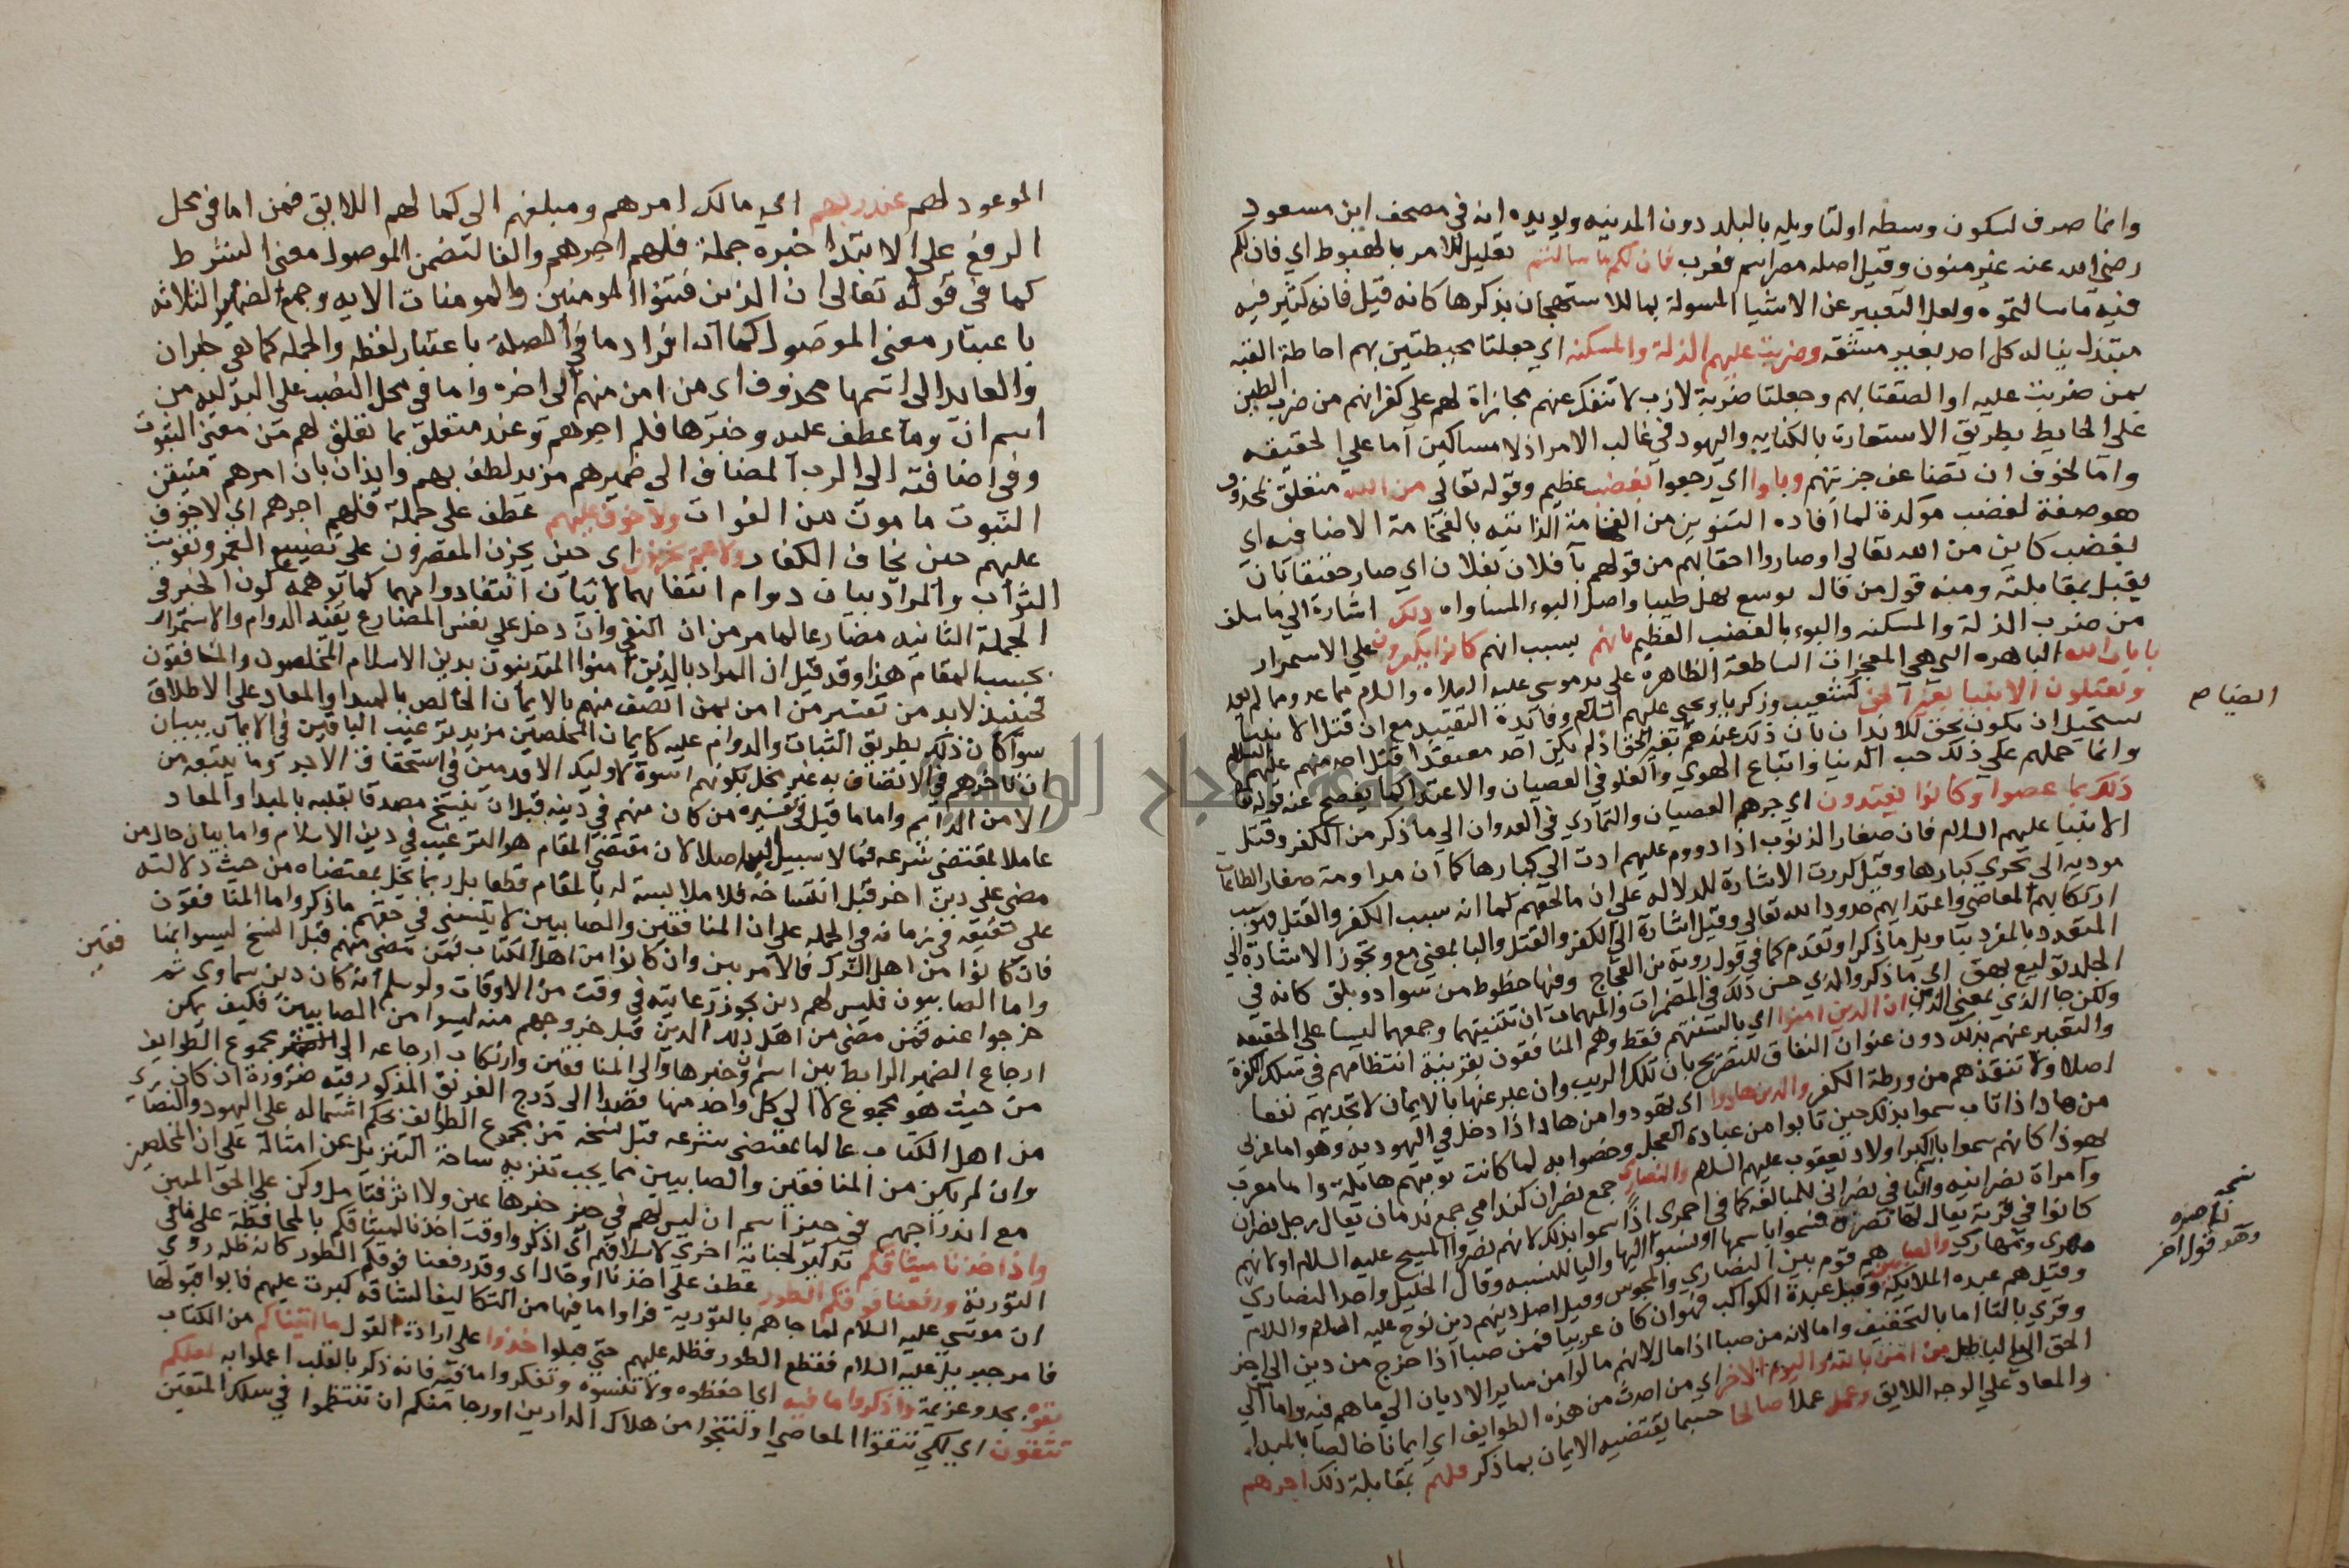 وانما صرف لسكون وسطه او لتاويله بالبلد دون المدينه ويويده انه في مصحف ابن مسعود
رضي الله عنه غير منون وقيل اصله مصرايم فعرب فان لكم ما سالتم تعليل للامر بالهبوط اي فان لكم
فيه ما سالتموه ولعل التعبير عن الاشيا المسولة بما للاستهجان بذكرها كانه قيل فانه كثير فيه
مبتذل يناله كل احد بغير مشقه وضربت عليهم الذلة والمسكنه اي جعلتا محيطتين بهم احاطة القبه
بمن ضربت عليه او الصقتا بهم وجعلتا ضربة لازب لا تنفك عنهم مجازاة لهم علي كفرانهم من ضرب الطين
علي الحايط بطريق الاستعارة بالكنايه واليهود في غالب الامر اذلا مساكين اما علي الحقيقه
واما لخوف ان تضاعف جزيتهم وباوا اي رجعوا بغضب عظيم وقوله تعالي من الله متعلق بمحذوف
هو صفة لغضب موكدة لما افاده التنوين من الفخامة الذاتيه بالفخامة الاضافيه اي
بغضب كاين من الله تعالي او صاروا احقا بهم من قولهم با فلان بفلان اي صار حقيقا بان
يقتل بمقابلته ومنه قول من قال بوبشسع نعل كليب واصل البوء المساواه ذلك اشارة الي ما سلف
من ضرب الذلة والمسكنه والبوء بالغضب العظيم بانهم بسبب انهم كانوا يكفرون علي الاستمرار
بايات الله الباهره التي هي المعجزات الساطعة الظاهرة علي يد موسي عليه الصلاه والسلام مما عد وما لم يعد
ويقتلون الانبيا بغير الحق كشعيب وزكريا ويحيي عليهم السلام وفايدة التقييد مع ان قتل الانبيا
يستحيل ان يكون بحق للايذان بان ذلك عندهم بغير الحق اذ لم يكن احد معتقدا قتل احد منهم عليهم السلام
وانما حملهم علي ذلك حب الدنيا واتباع الهوي والغلو في العصيان والاعتدا كما يفصح عنه قوله تعالي
ذلك بما عصوا وكانوا يعتدون اي جرهم العصيان والتمادي في العدوان الي ما ذكر من الكفر وقتل
الانبيا عليهم السلام فان صغار الذنوب اذا دووم عليهم ادت الي كبارها كما ان مداومة صغار الطاعات
موديه الي تحري كبارها وقيل كررت الاشارة للدلاله علي ان ما لحقهم كما انه سبب الكفر والقتل فهو بسبب
ارتكابهم المعاصي واعتدايهم حدود الله تعالي وقيل اشارة الي الكفر والقتل والبا بمعني مع ويجوز الاشارة الي
المتعدد بالمفرد بتاويل ما ذكر او تقدم كما في قول روبة بن العجاج وفيها خطوط من سواد وبلق كانه في
الجلد توليع بهق اي ما ذكر والذي حسن ذلك في المضمرات والمبهمات ان تثنيتهما وجمعهما ليسا علي الحقيقه
ولكن جا الذي بمعني الذين ان الذين امنوا اي بالسنتهم فقط وهم المنافقون بقرينة انتظامهم في سلك الكفرة
والتعبير عنهم بذلك دون عنوان النفاق للتصريح بان تلك المرتبه وان عبر عنها بالايمان لا تجديهم نفعا
اصلا ولا تنقذهم من ورطة الكفر والذين هادوا اي تهودوا من هاد اذا دخل في اليهوديه وهو اما عربي
من هاد اذا تاب سموا بذلك حين تابوا من عبادة العجل وخصوا به لما كانت توبتهم هايلة واما معرب
يهوذا كانهم سموا باكبر اولاد يعقوب عليهم السلام والنصاري جمع نصران كندامي جمع ندمان يقال رجل نصران
وامراة نصرانيه واليا في نصراني للمبالغه كما في احمري اذا سموا بذلك لانهم نصروا المسيح عليه السلام او لانهم
كانوا في قرية يقال لها نصرة فسموا باسمها او نسبوا اليها واليا للنسبه وقال الخليل واحد النصاري
مهري ومهاري والصابين هم قوم بين النصاري والمجوس وقيل اصل دينهم دين نوح عليه الصلاه والسلام
وقيل هم عبدة الملايكة وقيل عبدة الكواكب فهو ان كان عربيا فمن صبا اذا خرج من دين الي اخر
وقري باليا اما بالتخفيف واما لانه من صبا اذا مال لانهم مالوا من ساير الاديان الي ما هم فيه واما الي
الحق الي الباطل من امن بالله واليوم الاخر اي من احدث من هذه الطوايف اي ايمانا خالصا بالمبدا
والمعاد علي الوجه اللايق وعمل عملا صالحا حسبما يقتضيه الايمان بما ذكر فلهم بمقابلة ذلك اجرهم
الضيام
فهو قول اخر
الموعود لهم عند ربهم اي مالك امرهم ومبلغهم الي كمالهم اللايق فمن اما في محل
الرفع علي الابتدا خبره جملة فلهم اجرهم والفا لتضمن الموصول معني الشرط
كما في قوله تعالي ان الذين فتنوا المومنين والمومنات الايه وجمع الضماير الثلاثه
باعتبار معني الموصول كما ان افراد ما في الصلة باعتبار لفظه والجمله كما هي خبر ان
والعايد الي اسمها محذوف اي من امن منهم الي اخره واما في محل النصب علي البدليه من
اسم ان وما عطف عليه وخبرها فلهم اجرهم وعند متعلق بما تعلق لهم من معني الثبوت
وفي اضافته الي الرب المضاف الي ضميرهم مزيد لطف بهم وايذان بان اجرهم متيقن
الثبوت مامون من الفوات ولا خوف عليهم عطف علي جملة فلهم اجرهم اي لا خوف
عليهم حين يخاف الكفار ولا هم يحزنون اي حين يحزن المقصرون علي تضييع العمر وتفويت
الثواب والمراد بيان دوام انتفايهما لا بيان انتفا دوامهما كما يوهمه كون الخبر في
الجملة الثانيه مضارعا لما مر من ان النفي وان دخل علي نفس المضارع يفيد الدوام والاستمرار
بحسب المقام هذا وقد قيل ان المراد بالذين امنوا المتدينون بدين الاسلام المخلصون والمنافقون
فحينيذ لا بد من تفسير من امن بمن اتصف منهم بالايمان الخالص بالمبدا والمعاد علي الاطلاق
سوا كان ذلك بطريق الثبات والدوام عليه كايمان المخلصين مزيد ترغيب الباقين في الايمان ببيان
ان تاخرهم في الاتصاف به غير مخل بكونهم اسوة لاوليك الاقدمين في استحقاق الاجر وما يتبعه من
الامن الدايم واما ما قيل في تفسيره من كان منهم في دينه قبل ان ينسخ مصدقا بقلبه بالمبدا والمعاد
عاملا بمقتضي شرعه فمما لا سبيل اليه اصلا لان مقتضي المقام هو الترغيب في دين الاسلام واما بيان حال من
مضي علي دين اخر قبل انتساخه فلا ملابسة له بالمقام قطعا بل ربما يخل بمقتضاه من حيث دلالته
علي حقيقه في زمانه في الجمله علي ان المنافقين والصابيين لا يتسني في حقهم ما ذكر واما المنافقون
فان كانوا من اهل الشرك فالامر بين وان كانوا من اهل الكتاب فمن مضي منهم قبل النسخ ليسوا بمنا
فقين
واما الصابيون فليس لهم دين يجوز رعايته في وقت من الاوقات ولو سلم انه كان دين سماوي ثم
خرجوا عنه فمن مضي من اهل ذلك الدين قبل خروجهم منه ليسوا من الصابيين فكيف يمكن
ارجاع الضمير الرابط بين اسم ان وخبرها الي المنافقين وارتكاب ارجاعه الي مجموع الطوايف
من حيث هو مجموع لا الي كل واحد منها قصدا الي درج الفريق المذكور فيه ضرورة ان كان يري
من اهل الكتاب عاملا بمقتضي شرعه قبل نسخه من مجموع الطوايف بحكم اشتماله علي اليهود والنصاري
وان لم يكن من المنافقين والصابيين مما يجب تنزيه ساحة التنزيل عن امثاله علي ان المخلصين
مع اندراجهم في حيز اسم ان ليس لهم في حيز خبرها عين ولا اثر فتامل وكن علي الحق المبين
واذ اخذنا ميثاقكم تذكير لجناية اخري لاسلافهم اي اذكروا وقت اخذنا لميثاقكم بالمحافظة علي ما في
التورية ورفعنا فوقكم الطور عطف علي اخذنا او حال اي وقد رفعنا فوقكم الطور كانه ظله روي
ان موسي عليه السلام لما جاهم بالتورية فراوا ما فيها من التكاليف الشاقه كبرت عليهم فابوا قبولها
فامر جبريل عليه السلام فقطع الطور فظلله عليهم حتي قبلوا خذوا علي ارادة القول ما اتيناكم من الكتاب
بقوه بجد وعزيمة واذكروا ما فيه اي احفظوه ولا تنسوه وتفكروا ما فيه فانه ذكر بالقلب اعملوا به لعلكم
تتقون اي لكي تتقوا المعاصي او لتنجوا من هلاك الدارين او رجا منكم ان تنتظموا في سلك المتقين